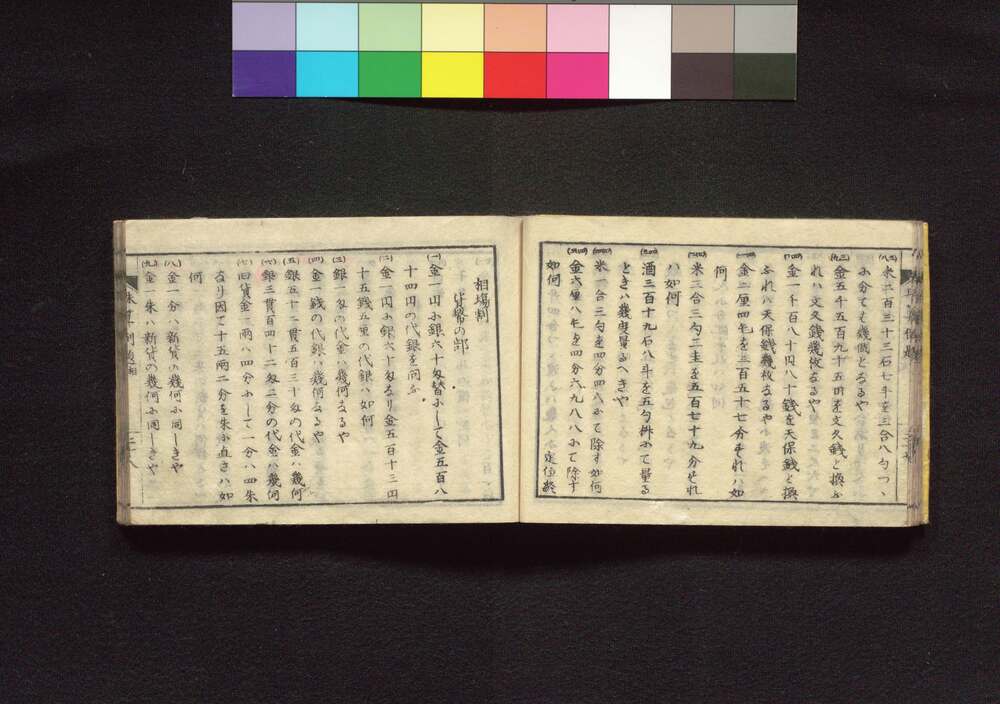 米二百三十三石七斗を三合八勺つヽ
に分ても幾俵となるや
金五千五百九十五円を文久銭と換ふ
れハ文久銭幾枚なるや
金一千百八十円八十銭を天保銭と換
ふれハ天保銭幾枚なるや
金二厘四毛を三百五十七分すれハ如
何
米二合三勺二圭を五百七十九分すれ
ハ如何
酒三百十九石八斗を五勺桝にて量る
ときハ幾度量るへきや
米一合三勺を四分四八にて除す如何
金六厘八毛を四分六九八八にて除す
如何 定位終
相場割
貨幣の部
(一)金一円に銀六十匁替にして金五百八
十四円の代銀を問ふ
(二)金一円に銀六十匁なり金五百十三円
十五銭五厘の代銀ハ如何
(三)銀一匁の代金ハ幾何なるや
(四)金一銭の代銀ハ幾何なるや
(五)銀五十二貫五百三十匁の代金ハ幾何
(六)銀三貫百四十二匁二分の代金ハ幾何
(七)旧貨金一両ハ四分にして一分ハ四朱
なり因て十五両二分を朱に直さハ如
何
(八)金一分ハ新貨の幾何に同しきや
(九)金一朱ハ新貨の幾何に同しきや